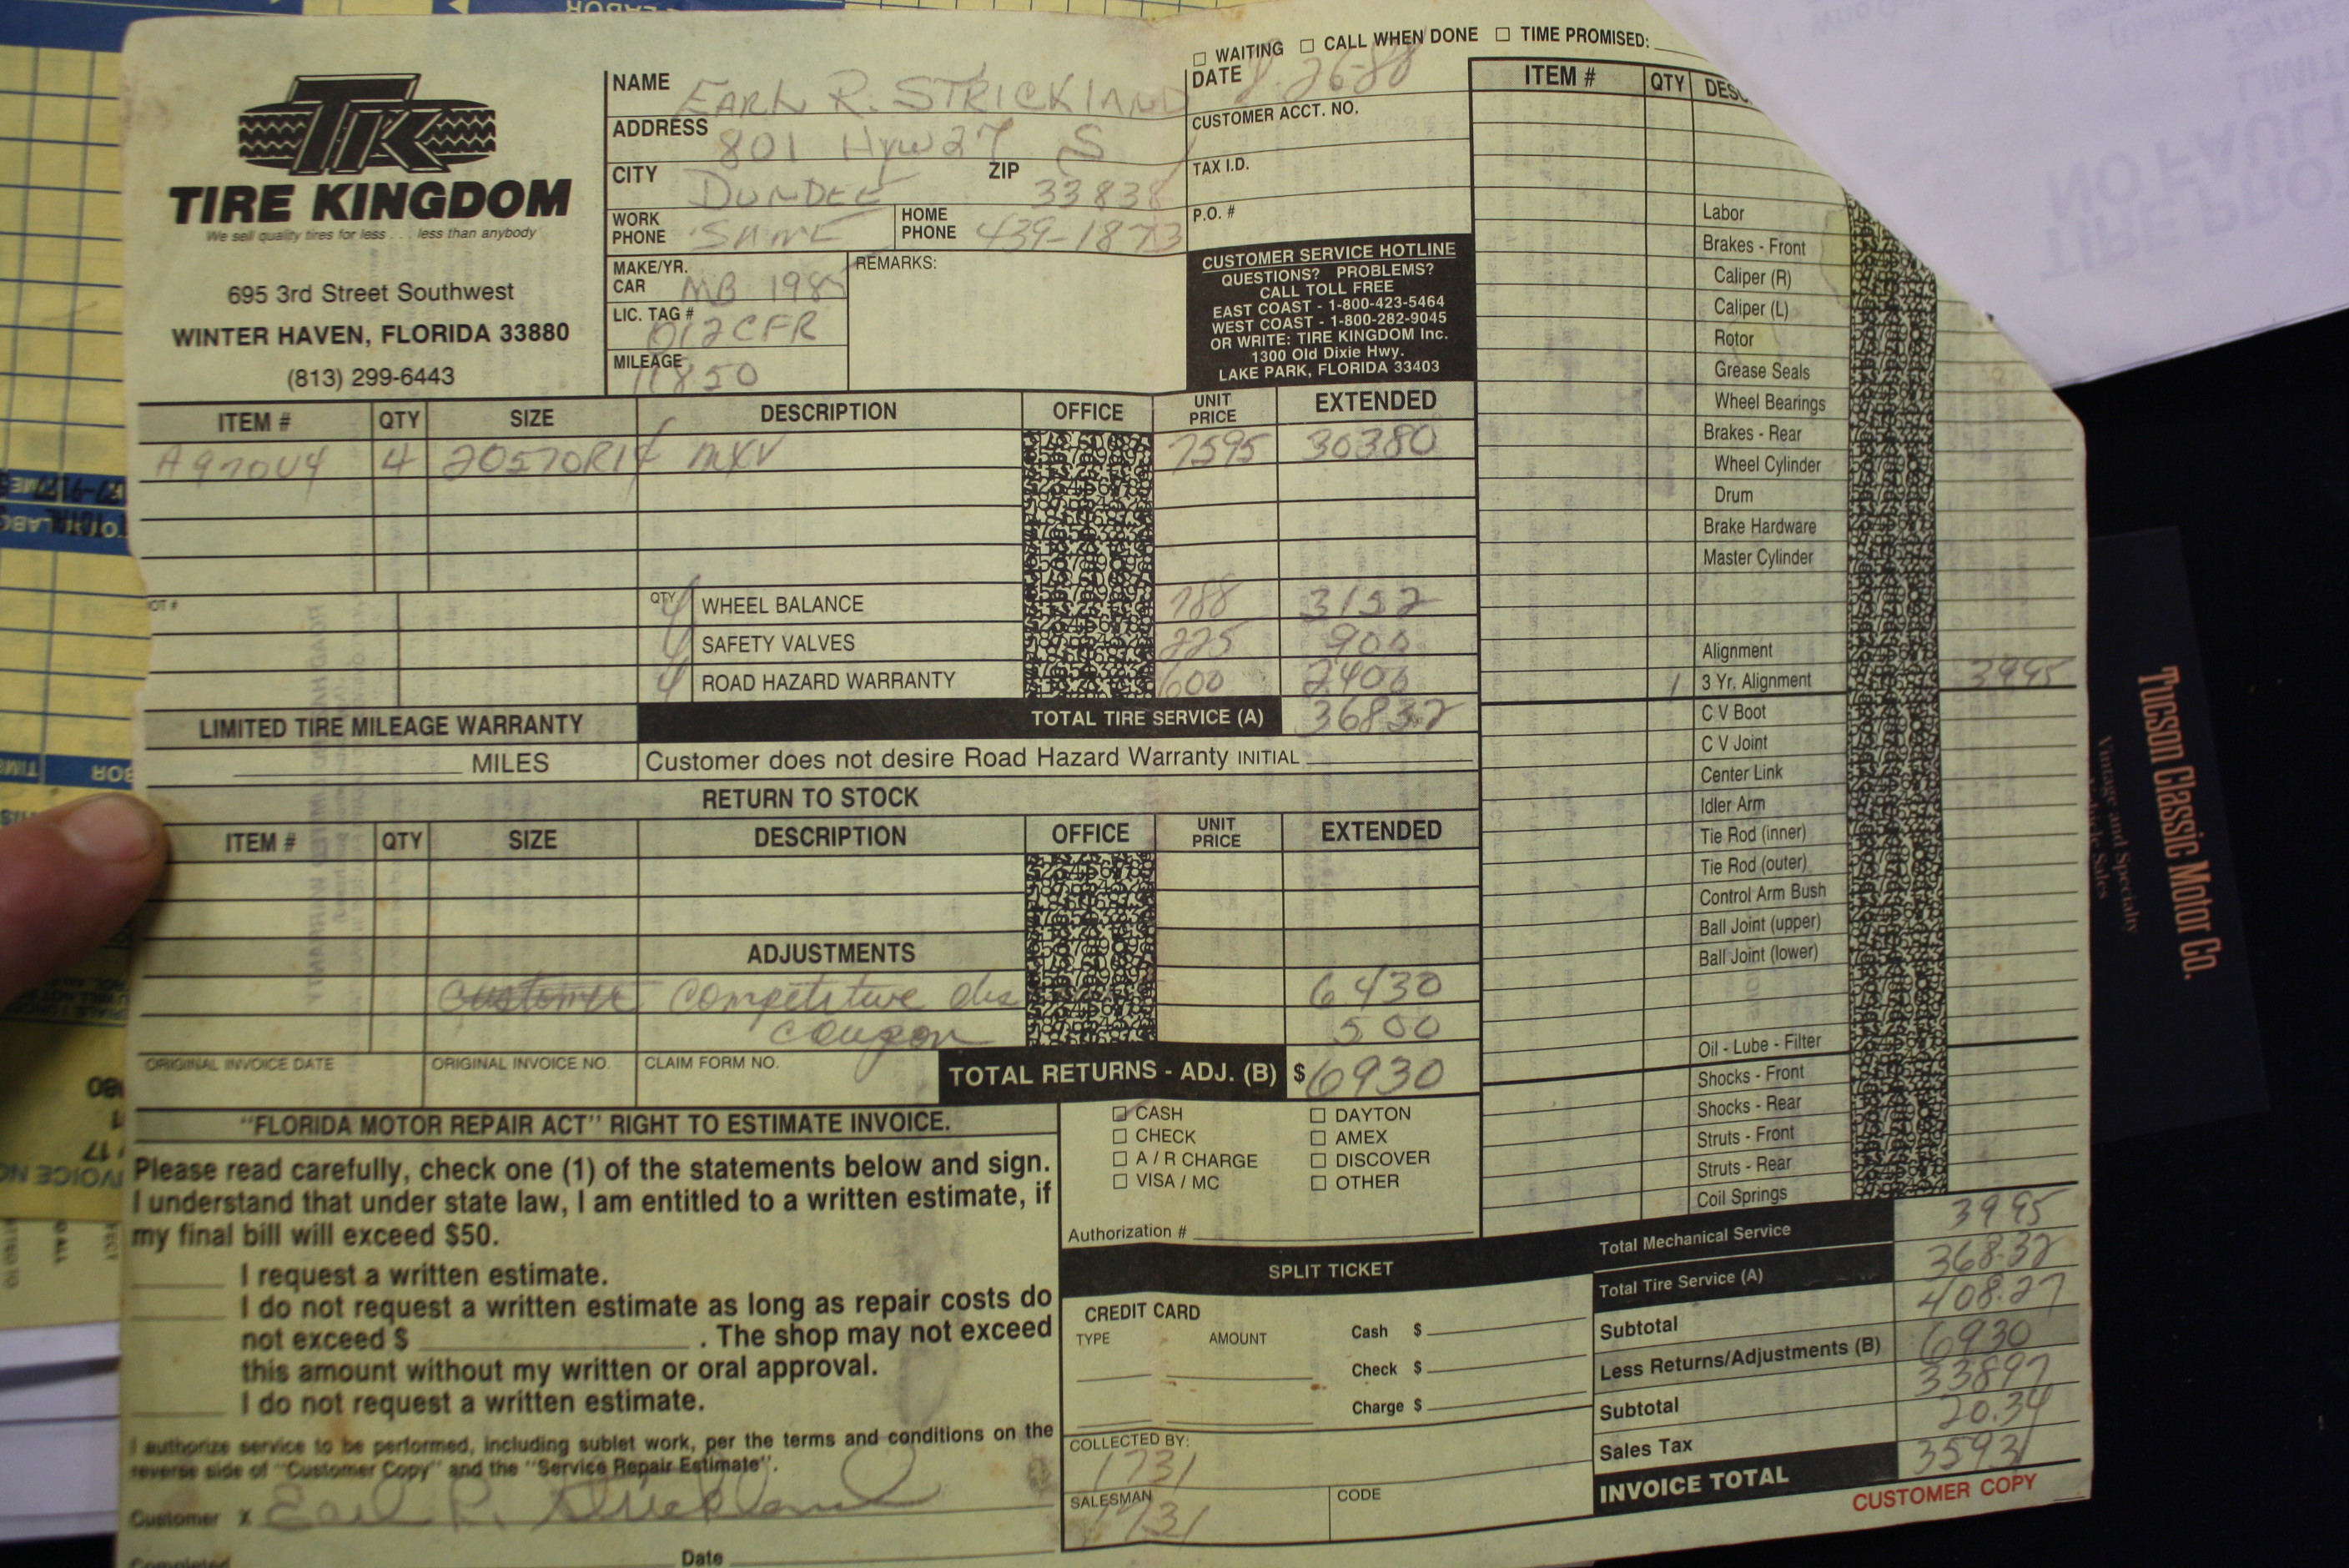 ☐ WAITING ☐ CALL WHEN DONE ☐ TIME PROMISED:
TK
TIRE KINGDOM
We sell quality tires for less . . . less than anybody
695 3rd Street Southwest
WINTER HAVEN, FLORIDA 33880
(813) 299-6443
NAME EARL R. STRICKLAND
ADDRESS 801 Hyw 27 S
CITY DUNDEE ZIP 33838
WORK PHONE SAME HOME PHONE 439-1873
MAKE/YR. CAR MB 1985
LIC. TAG # 012CFR
MILEAGE 11850
REMARKS:
DATE 8-26-88
CUSTOMER ACCT. NO.
TAX I.D.
P.O. #
CUSTOMER SERVICE HOTLINE
QUESTIONS? PROBLEMS?
CALL TOLL FREE
EAST COAST - 1-800-423-5464
WEST COAST - 1-800-282-9045
OR WRITE: TIRE KINGDOM Inc.
1300 Old Dixie Hwy.
LAKE PARK, FLORIDA 33403
ITEM # QTY SIZE DESCRIPTION OFFICE UNIT PRICE EXTENDED
A970U4 4 20570R14 MXV 7595 30380
QTY.
4 WHEEL BALANCE 788 3152
4 SAFETY VALVES 225 900
4 ROAD HAZARD WARRANTY 600 2400
LIMITED TIRE MILEAGE WARRANTY TOTAL TIRE SERVICE (A) 36832
MILES Customer does not desire Road Hazard Warranty INITIAL
RETURN TO STOCK
ITEM # QTY SIZE DESCRIPTION OFFICE UNIT PRICE EXTENDED
ADJUSTMENTS
customer competitive dis 6430
coupon 500
ORIGINAL INVOICE DATE ORIGINAL INVOICE NO. CLAIM FORM NO. TOTAL RETURNS - ADJ. (B) $6930
"FLORIDA MOTOR REPAIR ACT" RIGHT TO ESTIMATE INVOICE.
Please read carefully, check one (1) of the statements below and sign.
I understand that under state law, I am entitled to a written estimate, if
my final bill will exceed $50.
I request a written estimate.
I do not request a written estimate as long as repair costs do
not exceed $ . The shop may not exceed
this amount without my written or oral approval.
I do not request a written estimate.
I authorize service to be performed, including sublet work, per the terms and conditions on the
reverse side of "Customer Copy" and the "Service Repair Estimate".
Customer X Earl R. Strickland
Completed Date
☐ CASH ☐ DAYTON
☐ CHECK ☐ AMEX
☐ A / R CHARGE ☐ DISCOVER
☐ VISA / MC ☐ OTHER
Authorization #
SPLIT TICKET
CREDIT CARD
TYPE AMOUNT
Cash $
Check $
Charge $
COLLECTED BY: 1731
SALESMAN 1731
CODE
ITEM # QTY
Labor
Brakes - Front
Caliper (R)
Caliper (L)
Rotor
Grease Seals
Wheel Bearings
Brakes - Rear
Wheel Cylinder
Drum
Brake Hardware
Master Cylinder
Alignment
1 3 Yr. Alignment 3995
C V Boot
C V Joint
Center Link
Idler Arm
Tie Rod (inner)
Tie Rod (outer)
Control Arm Bush
Ball Joint (upper)
Ball Joint (lower)
Oil - Lube - Filter
Shocks - Front
Shocks - Rear
Struts - Front
Struts - Rear
Coil Springs
Total Mechanical Service 3995
Total Tire Service (A) 368.32
Subtotal 408.27
Less Returns/Adjustments (B) 6930
Subtotal 33897
Sales Tax 20.34
INVOICE TOTAL 35931
CUSTOMER COPY
Tucson Classic Motor Co.
Vintage and Specialty
Vehicle Sales